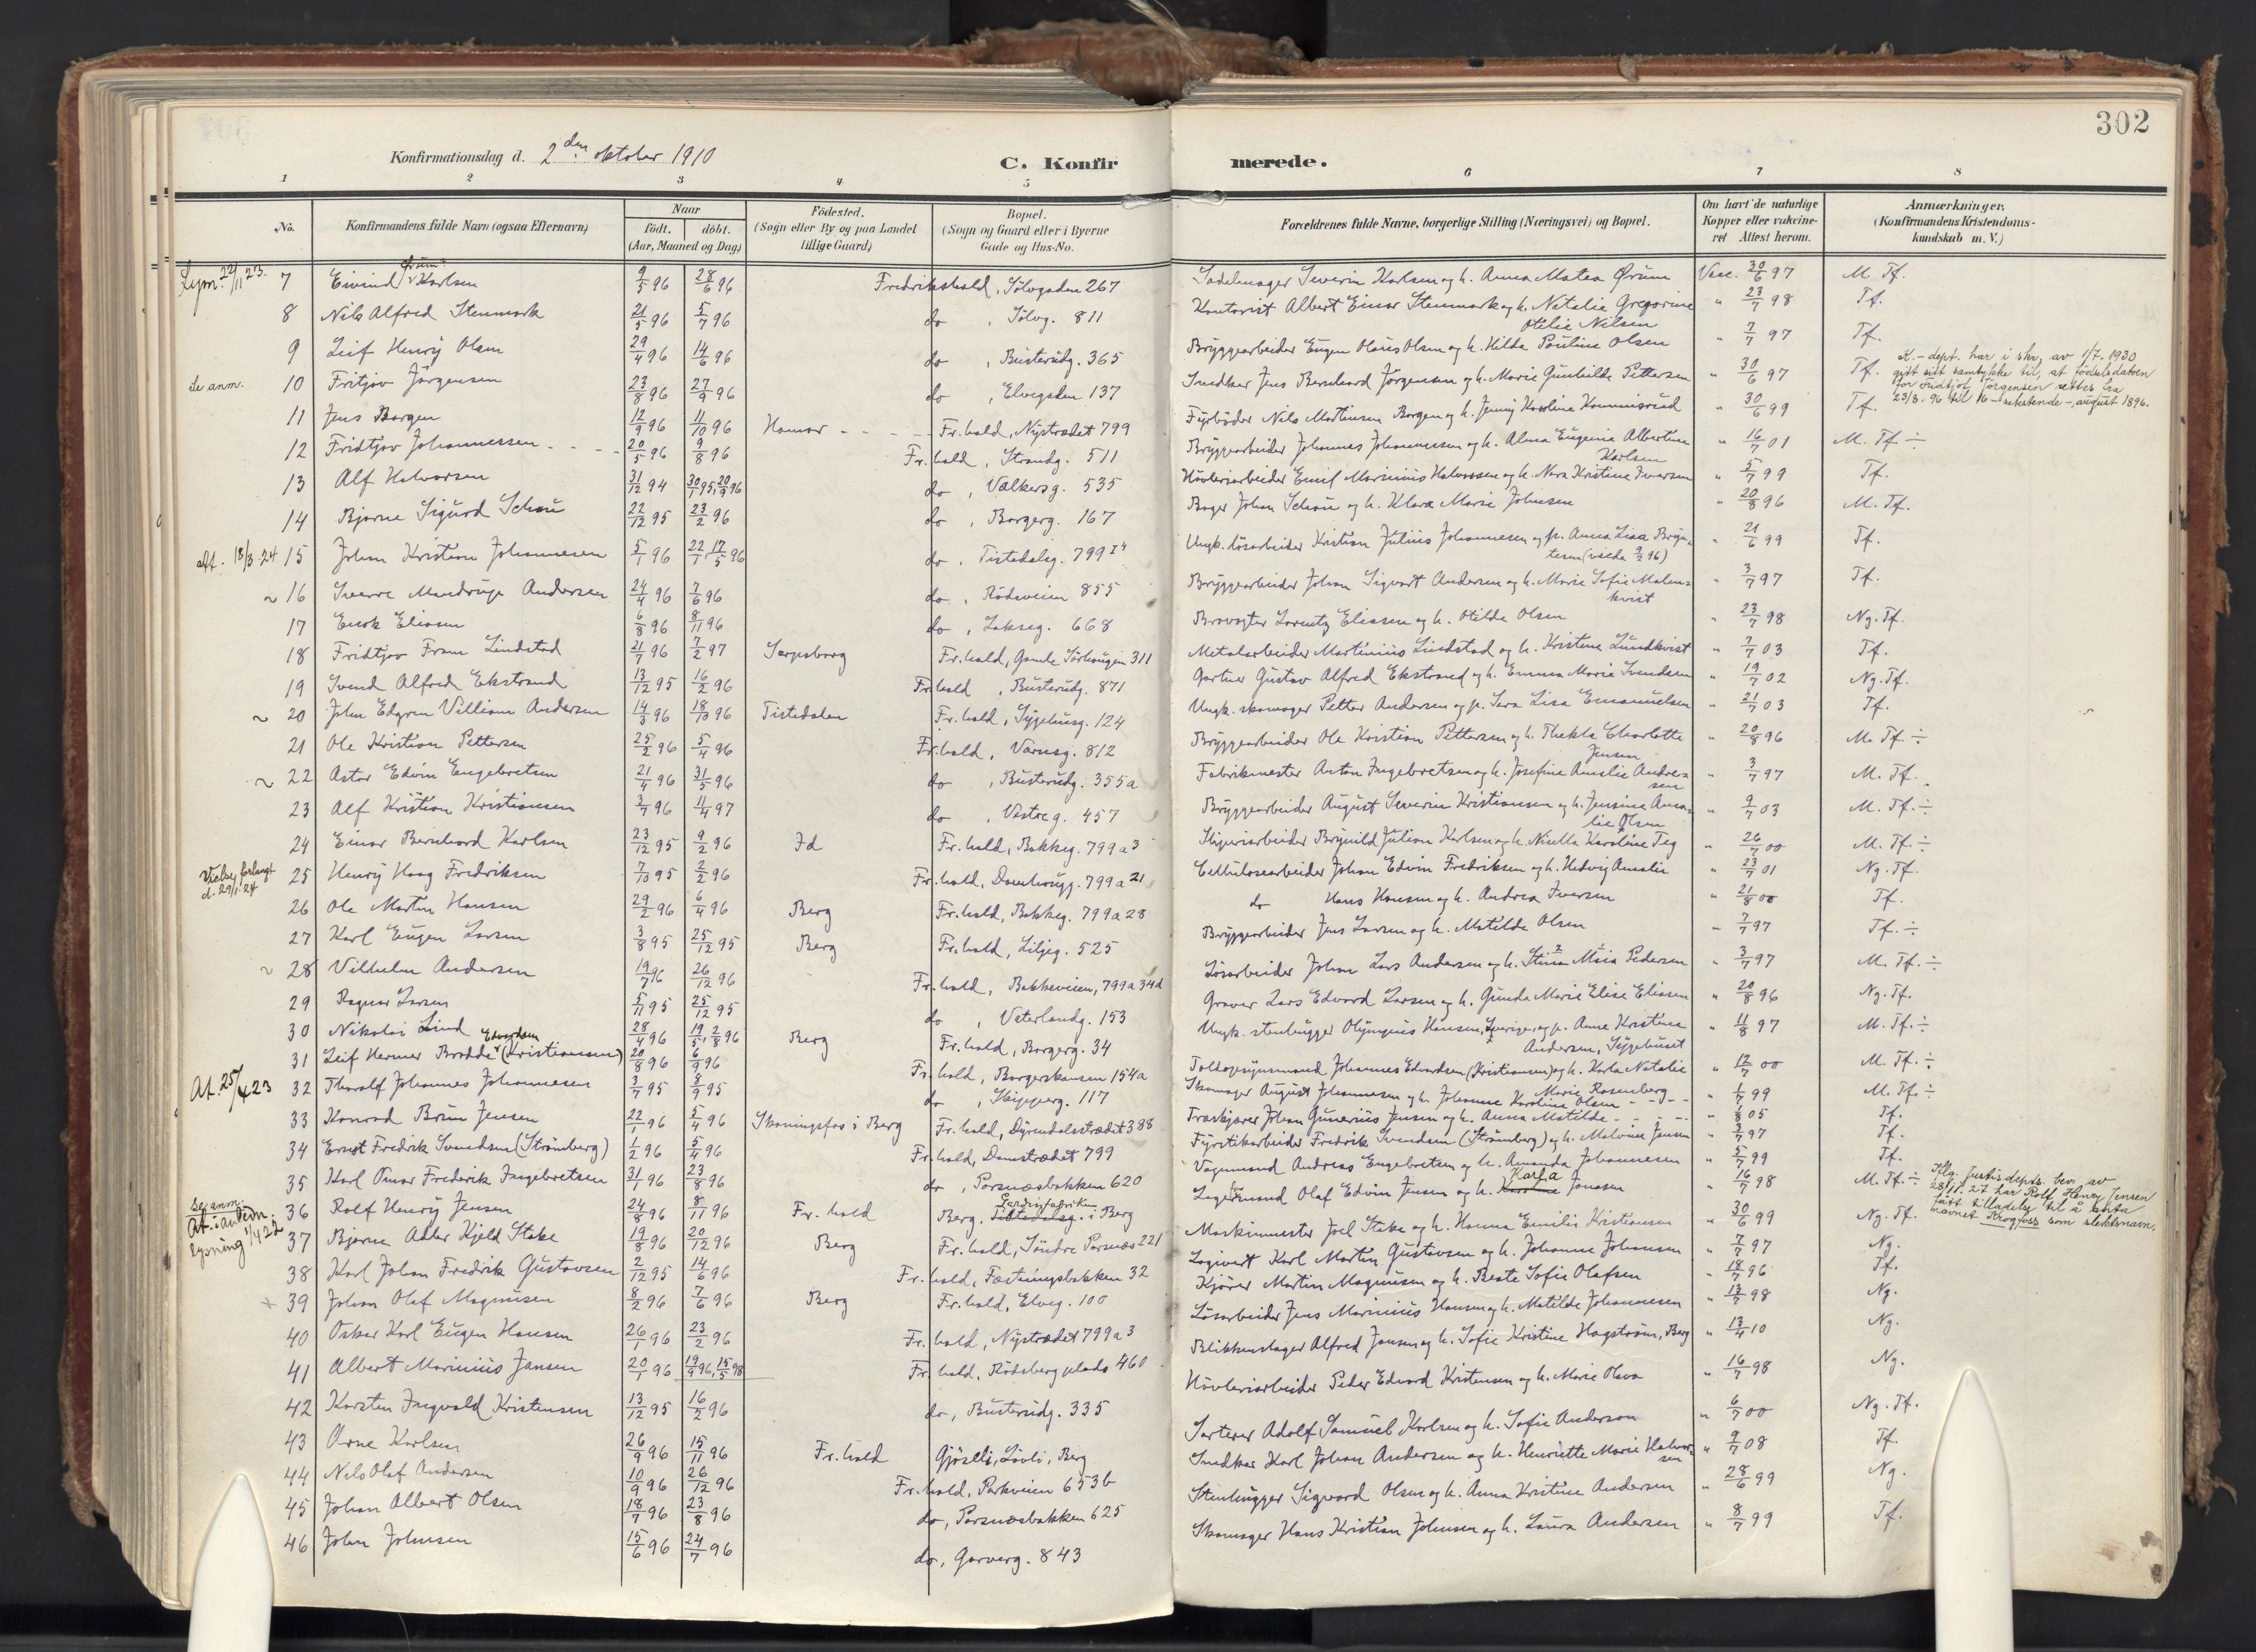 302
Konfirmationsdag d. 2den oktober 1910
C. Konfir merede.
1 2 3 4 5 6 7 8
No. Konfirmandens fulde Navn (ogsaa Efternavn) Naar födt. döbt. (Aar, Maaned og Dag) Födested. (Sogn eller By og paa Landet tillige Gaard) Bopæl. (Sogn og Gaard eller i Byerne Gade og Hus-No. Forældrenes fulde Navne, borgerlige Stilling (Næringsvei) og Bopæl. Om havt de naturlige Kopper eller vakcineret Attest herom. Anmærkninger. (Konfirmandens Kristendomskundskab m. V.)
7 Eivind Ørum Karlsen 9/5 96 28/6 96 Fredrikshald, Sølvgaden 267 Sadelmager Severin Karlsen og h. Anna Matea Ørum Vacc. 30/6 97 M. Tf.
8 Nils Alfred Stenmark 21/5 96 5/7 96 do, Sølvg. 811 Kontorist Albert Einar Stenmark og h. Natalie Gregorine Otelie Nilsen " 23/7 98 Tf.
9 Leif Henry Olsen 29/4 96 14/6 96 do, Busterudg. 365 Bryggearbeider Eugen Olaus Olsen og h. Hilda Pauline Olsen " 7/7 97 Tf.
se anm. 10 Fritjov Jørgensen 23/8 96 27/9 96 do, Elvegaden 137 Snedker Jens Bernhard Jørgensen og h. Marie Gunhilde Pettersen " 30/6 97 Tf. K.-dept. har i skr. av 1/7. 1930 gitt sitt samtykke til, at fødselsdatoen for Fridtjof Jørgensen rettes fra 23/8. 96 til 16 - sekstende - august 1896.
11 Jens Borgen 12/9 96 11/10 96 Hamar Fr.hald, Nystrædet 799 Fyrbøder Nils Martinsen Borgen og h. Jenny Karoline Kommisrud " 30/6 99 Tf.
12 Fridtjov Johannessen 20/5 96 9/8 96 Fr.hald, Strandg. 511 Bryggearbeider Johannes Johannessen og h. Alma Eugenia Albertine Karlsen " 16/7 01 M. Tf ÷
13 Alf Halvorsen 31/12 94 30/1 95, 20/9 96 do, Vælkersg. 535 Høvleriarbeider Emil Marinius Halvorsen og h. Nora Kristine Iversen " 5/7 99 Tf.
14 Bjarne Sigurd Schou 22/12 95 23/2 96 do, Borgerg. 167 Bager Johan Schou og h. Klara Marie Johnsen " 20/8 96 M. Tf.
att. 18/3-24 15 Johan Kristian Johannesen 5/1 96 22/1, 17/5 96 do, Tistedalsg. 799 Ungk. løsarbeider Kristian Julius Johannesen og p. Anna Lisa (viede 9/2 96) " 21/6 99 Tf.
~ 16 Sverre Mandrup Andersen 24/4 96 7/6 96 do, Rødsveien 855 Bryggearbeider Johan Sigvart Andersen og h. Marie Sofie Malmkvist " 3/7 97 Tf.
17 Enok Eliasen 6/8 96 8/11 96 do, Lakseg. 668 Brovogter Lorentz Eliasen og h. Otilde Olsen " 23/7 98 Ng. Tf.
18 Fridtjov Fram Lindstad 21/7 96 7/2 97 Sarpsborg Fr.hald, Gamle Sørhaugen 311 Metalarbeider Martinius Lindstad og h. Kristine Lundkvist " 7/7 03 Tf.
19 Svend Alfred Ekstrand 13/12 95 16/2 96 Fr.hald, Busterudg. 871 Gartner Gustav Alfred Ekstrand og h. Emma Marie Svendsen " 19/7 02 Ng. Tf.
~ 20 John Edgren Villiam Andersen 14/3 96 18/10 96 Tistedalen Fr.hald, Sygehusg. 124 Ungk. skomager Petter Andersen og p. Sara Lisa Emanuelsen " 21/7 03 Tf.
21 Ole Kristian Pettersen 25/2 96 5/4 96 Fr.hald, Værnsg. 812 Bryggearbeider Ole Kristian Pettersen og h. Thekla Charlotte Jensen " 20/8 96 M. Tf ÷
~ 22 Astor Edvin Engebretsen 21/4 96 31/5 96 do, Busterudg. 355a Fabrikmester Anton Ingebretsen og h. Josefine Amalie Andresen " 3/7 97 M. Tf.
23 Alf Kristian Kristiansen 3/7 96 11/4 97 do, Vestre g. 457 Bryggearbeider August Severin Kristiansen og h. Jensine Amalie Olsen " 9/7 03 M. Tf. ÷
24 Einar Bernhard Karlsen 23/12 95 9/2 96 Id Fr.hald, Bakkeg. 799 a 3 Sliperiarbeider Brynild Julian Karlsen og h. Nisella Karoline Teg " 26/7 00 M. Tf. ÷
Vielse forlangt d. 29/1-24 25 Henry Haag Fredriksen 7/10 95 2/2 96 Fr.hald, Damhaugg. 799 a 21 Cellulosearbeider Johan Edvin Fredriksen og h. Hedvig Amalie " 23/7 01 Ng. Tf.
26 Ole Martin Hansen 29/2 96 6/4 96 Berg Fr.hald, Bakkeg. 799 a 28 do Hans Hansen og h. Andrea Iversen " 21/8 00 Tf.
27 Karl Eugen Larsen 3/8 95 25/12 95 Berg Fr.hald, Liljeg. 525 Bryggearbeider Jens Larsen og h. Matilde Olsen " 7/7 97 Tf. ÷
~ 28 Vilhelm Andersen 19/7 96 26/12 96 Fr.hald, Bakkeveien, 799 a 34d Løsarbeider Johan Lars Andersen og h. Stina Maia Pedersen " 3/7 97 M. Tf. ÷
29 Ragnar Larsen 5/11 95 25/12 95 do, Veterlandg. 153 Graver Lars Edvard Larsen og h. Gunda Marie Elise Eliasen " 20/8 96 Ng. Tf.
30 Nikolai Lind 28/4 96 19/5, 2/8 96 Berg Fr.hald, Borgerg. 34 Ungk. stenhugger Olympius Hansen, Sverige, og p. Anne Kristine Andersen, Sygehuset " 11/8 97 M. Tf. ÷
31 Leif Hermer Brodde Edvardsen (Kristiansen) 20/8 96 6/9 96 Fr.hald, Borgerskansen 154a Toldopsynsmand Johannes Edvardsen (Kristiansen) og h. Karla Natalie Marie Rosenberg " 12/7 00 M. Tf. ÷
At. 25/4 23 32 Thoralf Johannes Johannesen 3/7 95 8/9 95 do, Skipperg. 117 Skomager August Johannesen og h. Johanne Karoline Olsen " 1/7 99 M. Tf. ÷
33 Konrad Brun Jensen 22/1 96 5/4 96 Skoningsfos i Berg Fr.hald, Dyrendalsstrædet 388 Træskjærer Johan Gunerius Jensen og h. Anna Matilde " 1/8 05 Tf.
34 Ernst Fredrik Svendsen (Strömberg) 1/2 96 5/4 96 Fr.hald, Damstrædet 799 Fyrstikarbeider Fredrik Svendsen (Strömberg) og h. Malvine Jensen " 3/7 97 Tf.
35 Karl Omar Frederik Ingebretsen 31/1 96 23/8 96 do, Porsnæsbakken 620 Vognmand Andreas Engebretsen og h. Amanda Johannesen " 5/7 99 Tf.
Se anm. 36 Rolf Henry Jensen 24/8 96 8/11 96 Fr.hald Berg. Tistedalsg. i Berg Lagermand Olaf Edvin Jensen og h. Karla Jonasen " 16/7 98 M. Tf ÷ Iflg. Justisdepts. bev. av 28/11. 27 har Rolf Henry Jensen fått tilladelse til å anta navnet Krogfoss som slektsnavn.
At. i anledn. lysning 1/4 22 37 Bjarne Adler Kjeld Stake 19/8 96 20/12 96 Berg Fr.hald, Søndre Porsnæs 221 Maskinmester Joel Stake og h. Hanna Emilie Kristiansen " 30/6 99 Ng. Tf.
38 Karl Johan Fredrik Gustavsen 2/12 95 14/6 96 Fr.hald, Fæstningsbakken 32 Logivert Karl Martin Gustavsen og h. Johanne Johansen " 7/7 97 Ng.
39 Johan Olaf Magnusen 8/2 96 7/6 96 Berg Fr.hald, Elveg. 100 Kjører Martin Magnusen og h. Beate Sofie Olafsen " 18/7 96 Tf.
40 Oskar Karl Eugen Hansen 26/1 96 23/2 96 Fr.hald, Nystrædet 799 a 3 Løsarbeider Jens Marinius Hansen og h. Matilde Johannesen " 13/7 98 Ng.
41 Albert Marinius Jansen 20/1 96 19/9 96, 15/5 98 Fr.hald, Rødsberg plads 460 Blikkenslager Alfred Jansen og h. Sofie Kristine Hagstrøm, Berg " 13/4 10 Ng.
42 Karsten Ingvald Kristensen 13/12 95 16/2 96 do, Busterudg. 335 Høvleriarbeider Peder Edvard Kristensen og h. Marie Olava " 16/7 98 Ng.
43 Arne Karlsen 26/9 96 15/11 96 Fr.hald Gjøslli, Løvli, Berg Sorterer Adolf Samuel Karlsen og h. Sofie Anderson " 6/7 00 Ng. Tf.
44 Nils Olaf Andersen 10/9 96 26/12 96 Fr.hald, Parkveien 653b Snedker Karl Johan Andersen og h. Henriette Marie Halvorsen " 9/7 08 Tf.
45 Johan Albert Olsen 18/7 96 23/8 96 do, Porsnæsbakken 625 Stenhugger Sigvard Olsen og h. Anna Kristine Andersen " 28/6 99 Ng.
46 John Johnsen 15/6 96 24/7 96 do, Garverg. 843 Skomager Hans Kristian Johnsen og h. Laura Andersen " 8/7 99 Tf.